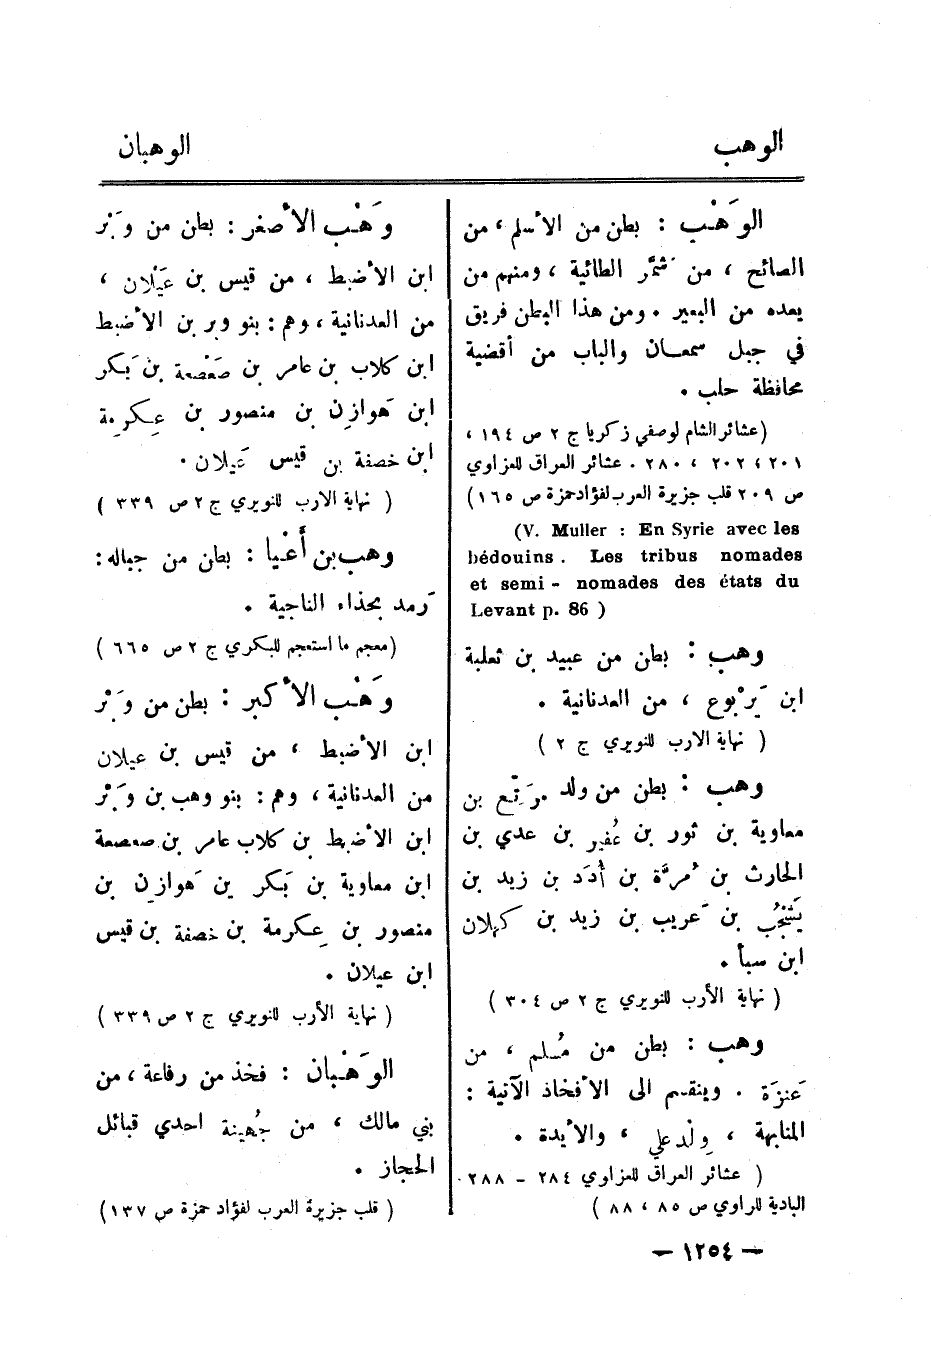 الوهب
الوهبان
الوَهْب : بطن من الأسلم ، من
الصائح ، من شَمَّر الطائية ، ومنهم من
يعده من البعير . ومن هذا البطن فريق
في جبل سمعان والباب من أقضية
محافظة حلب .
(عشائر الشام لوصفي زكريا ج ٢ ص ١٩٤ ،
٢٠١ ، ٢٠٢ ، ٢٨٠ . عشائر العراق للعزاوي
ص ٢٠٩ قلب جزيرة العرب لفؤاد حمزة ص ١٦٥)
(V. Muller : En Syrie avec les
bédouins . Les tribus nomades
et semi - nomades des états du
Levant p. 86 )
وهب : بطن من عبيد بن ثعلبة
ابن يَرْبوع ، من العدنانية .
( نهاية الارب للنويري ج ٢ )
وهب : بطن من ولد مرَتِّع بن
معاوية بن ثور بن عُفَير بن عدي بن
الحارث بن مُرَّة بن أُدَد بن زيد بن
يَشْجُب بن عَريب بن زيد بن كهلان
ابن سبأ .
( نهاية الأرب للنويري ج ٢ ص ٣٠٤ )
وهب : بطن من مُسلم ، من
عَنَزَة . وينقسم الى الأفخاذ الآتية :
المنابهة ، وِلْد علي ، والأيدة .
( عشائر العراق للعزاوي ٢٨٤ - ٢٨٨ .
البادية للراوي ص ٨٥ ، ٨٨ )
وَهْب الأصغر : بطن من وَبْر
ابن الأضبط ، من قيس بن عَيْلان ،
من العدنانية ، وهم : بنو وبر بن الأضبط
ابن كلاب بن عامر بن صَعْصعة بن بَكر
ابن هَوازِن بن منصور بن عِكرِمة
ابن خصفة بن قيس عَيلان .
( نهاية الارب للنويري ج ٢ ص ٣٣٩ )
وهب بن أَعْيا : بطن من جباله :
رَمد بحذاء الناجية .
(معجم ما استعجم للبكري ج ٢ ص ٦٦٥ )
وَهْب الأكبر : بطن من وَبْر
ابن الأضبط ، من قيس بن عيلان
من العدنانية ، وهم : بنو وهب بن وَبْر
ابن الأضبط بن كلاب عامر بن صعصعة
ابن معاوية بن بَكر بن هَوازِن بن
منصور بن عِكرمة بن خصفة بن قيس
ابن عيلان .
( نهاية الأرب للنويري ج ٢ ص ٣٣٩ )
الوَهْبان : فخذ من رفاعة ، من
بني مالك ، من جُهينة احدي قبائل
الحجاز .
( قلب جزيرة العرب لفؤاد حمزة ص ١٣٧)
— ١٢٥٤ —